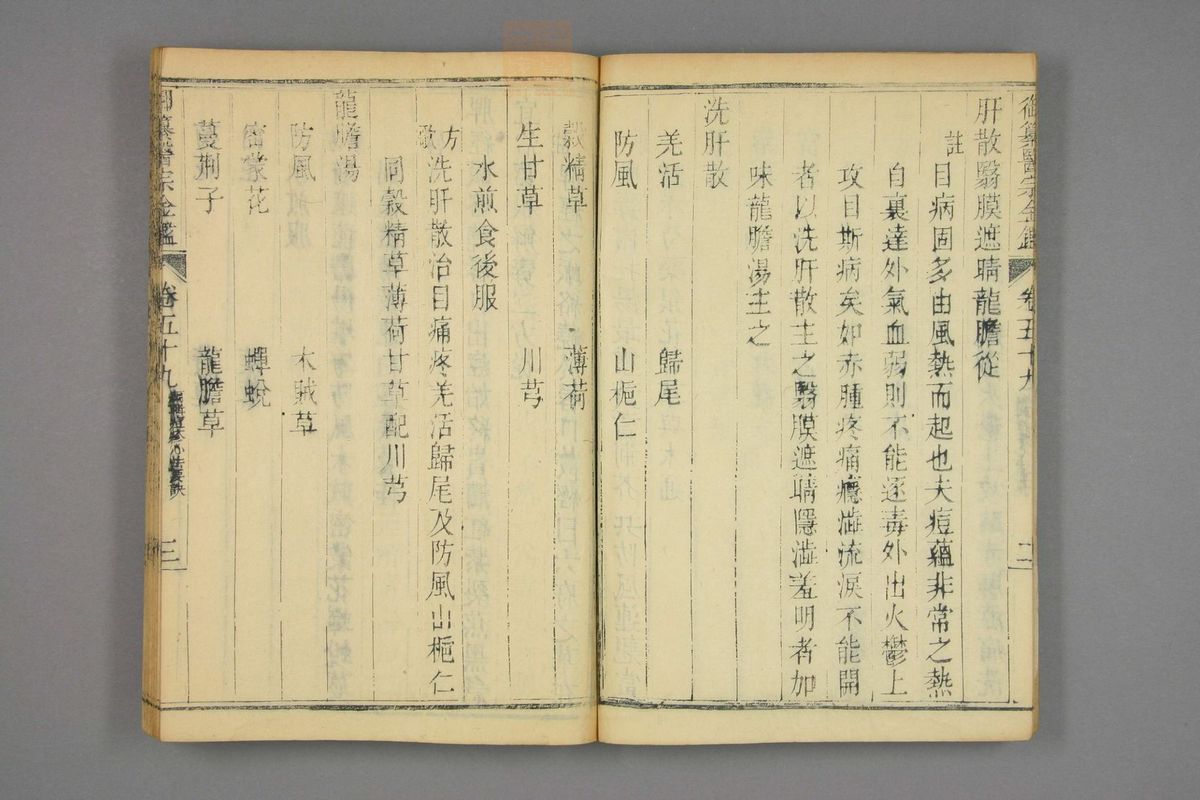 御纂醫宗金鑑 卷五十九 二
肝散翳膜遮睛龍膽從
註
目病固多由風熱而起也夫痘蘊非常之熱
自裏達外氣血弱則不能逐毒外出火鬱上
攻目斯病矣如赤腫疼痛癮澁流淚不能開
者以洗肝散主之翳膜遮睛隱澁羞明者加
味龍膽湯主之
洗肝散
羌活 歸尾
防風 山梔仁
穀精草 薄荷
生甘草 川芎
水煎食後服
方歌
洗肝散治目痛疼羌活歸尾及防風山梔仁
同穀精草薄荷甘草配川芎
龍膽湯
防風 木賊草
密蒙花 蟬蛻
蔓荊子 龍膽草
御纂醫宗金鑑 卷五十九 三